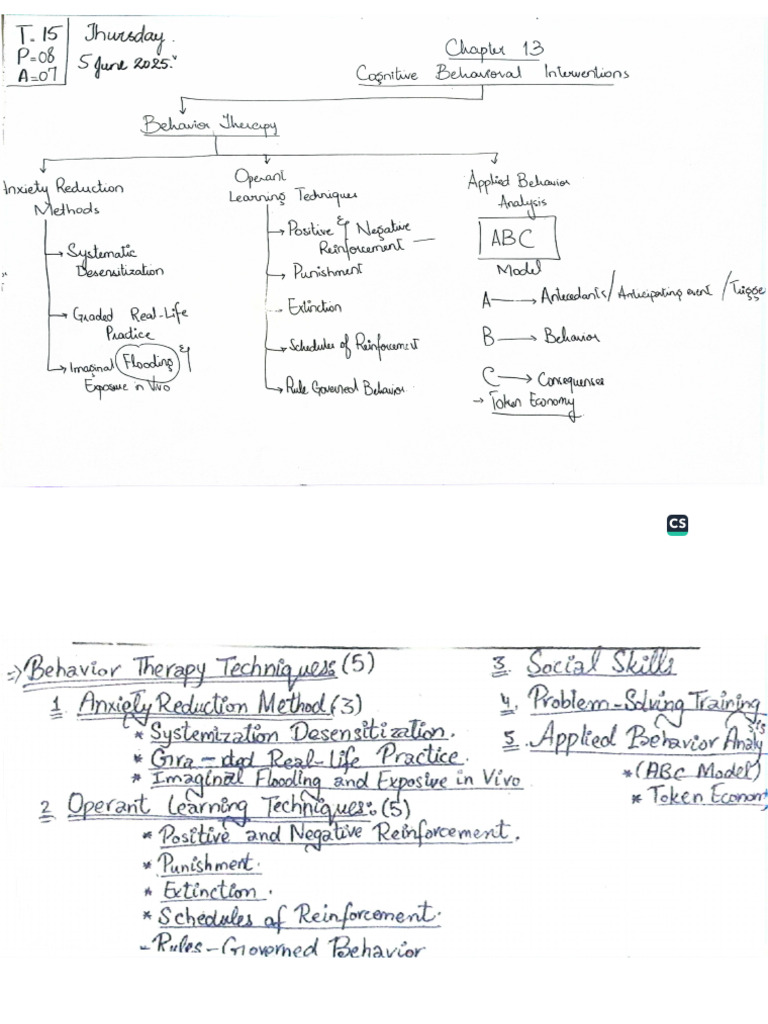 T. 15
P=08
A=07
Thursday.
5 June 2025.
Chapter 13
Cognitive Behavioral Interventions
Behavior Therapy
Anxiety Reduction
Methods
→ Systematic
Desensitization
→ Graded Real-Life
Practice
→ Imaginal Flooding &
Exposure in Vivo
Operant
Learning Techniques
→ Positive & Negative
Reinforcement —
→ Punishment
Extinction
→ Schedules of Reinforcement
→ Rule Governed Behavior
Applied Behavior
Analysis
ABC
Model
A → Antecedants/Anticipating event /Trigge
B → Behavior
C → Consequences
→ Token Economy
CS
⇒ Behavior Therapy Techniques: (5)
1 Anxiety Reduction Method (3)
* Systemization Desensitization.
* Gra-ded Real-life Practice.
* Imaginal Flooding and Exposive in Vivo
2 Operant Learning Techniques: (5)
* Positive and Negative Reinforcement.
* Punishment.
* Extinction.
* Schedules of Reinforcement.
- Rules-Governed Behavior
3. Social Skills
4. Problem-Solving Training
5. Applied Behavior Analysis
*(ABC Model)
* Token Econom